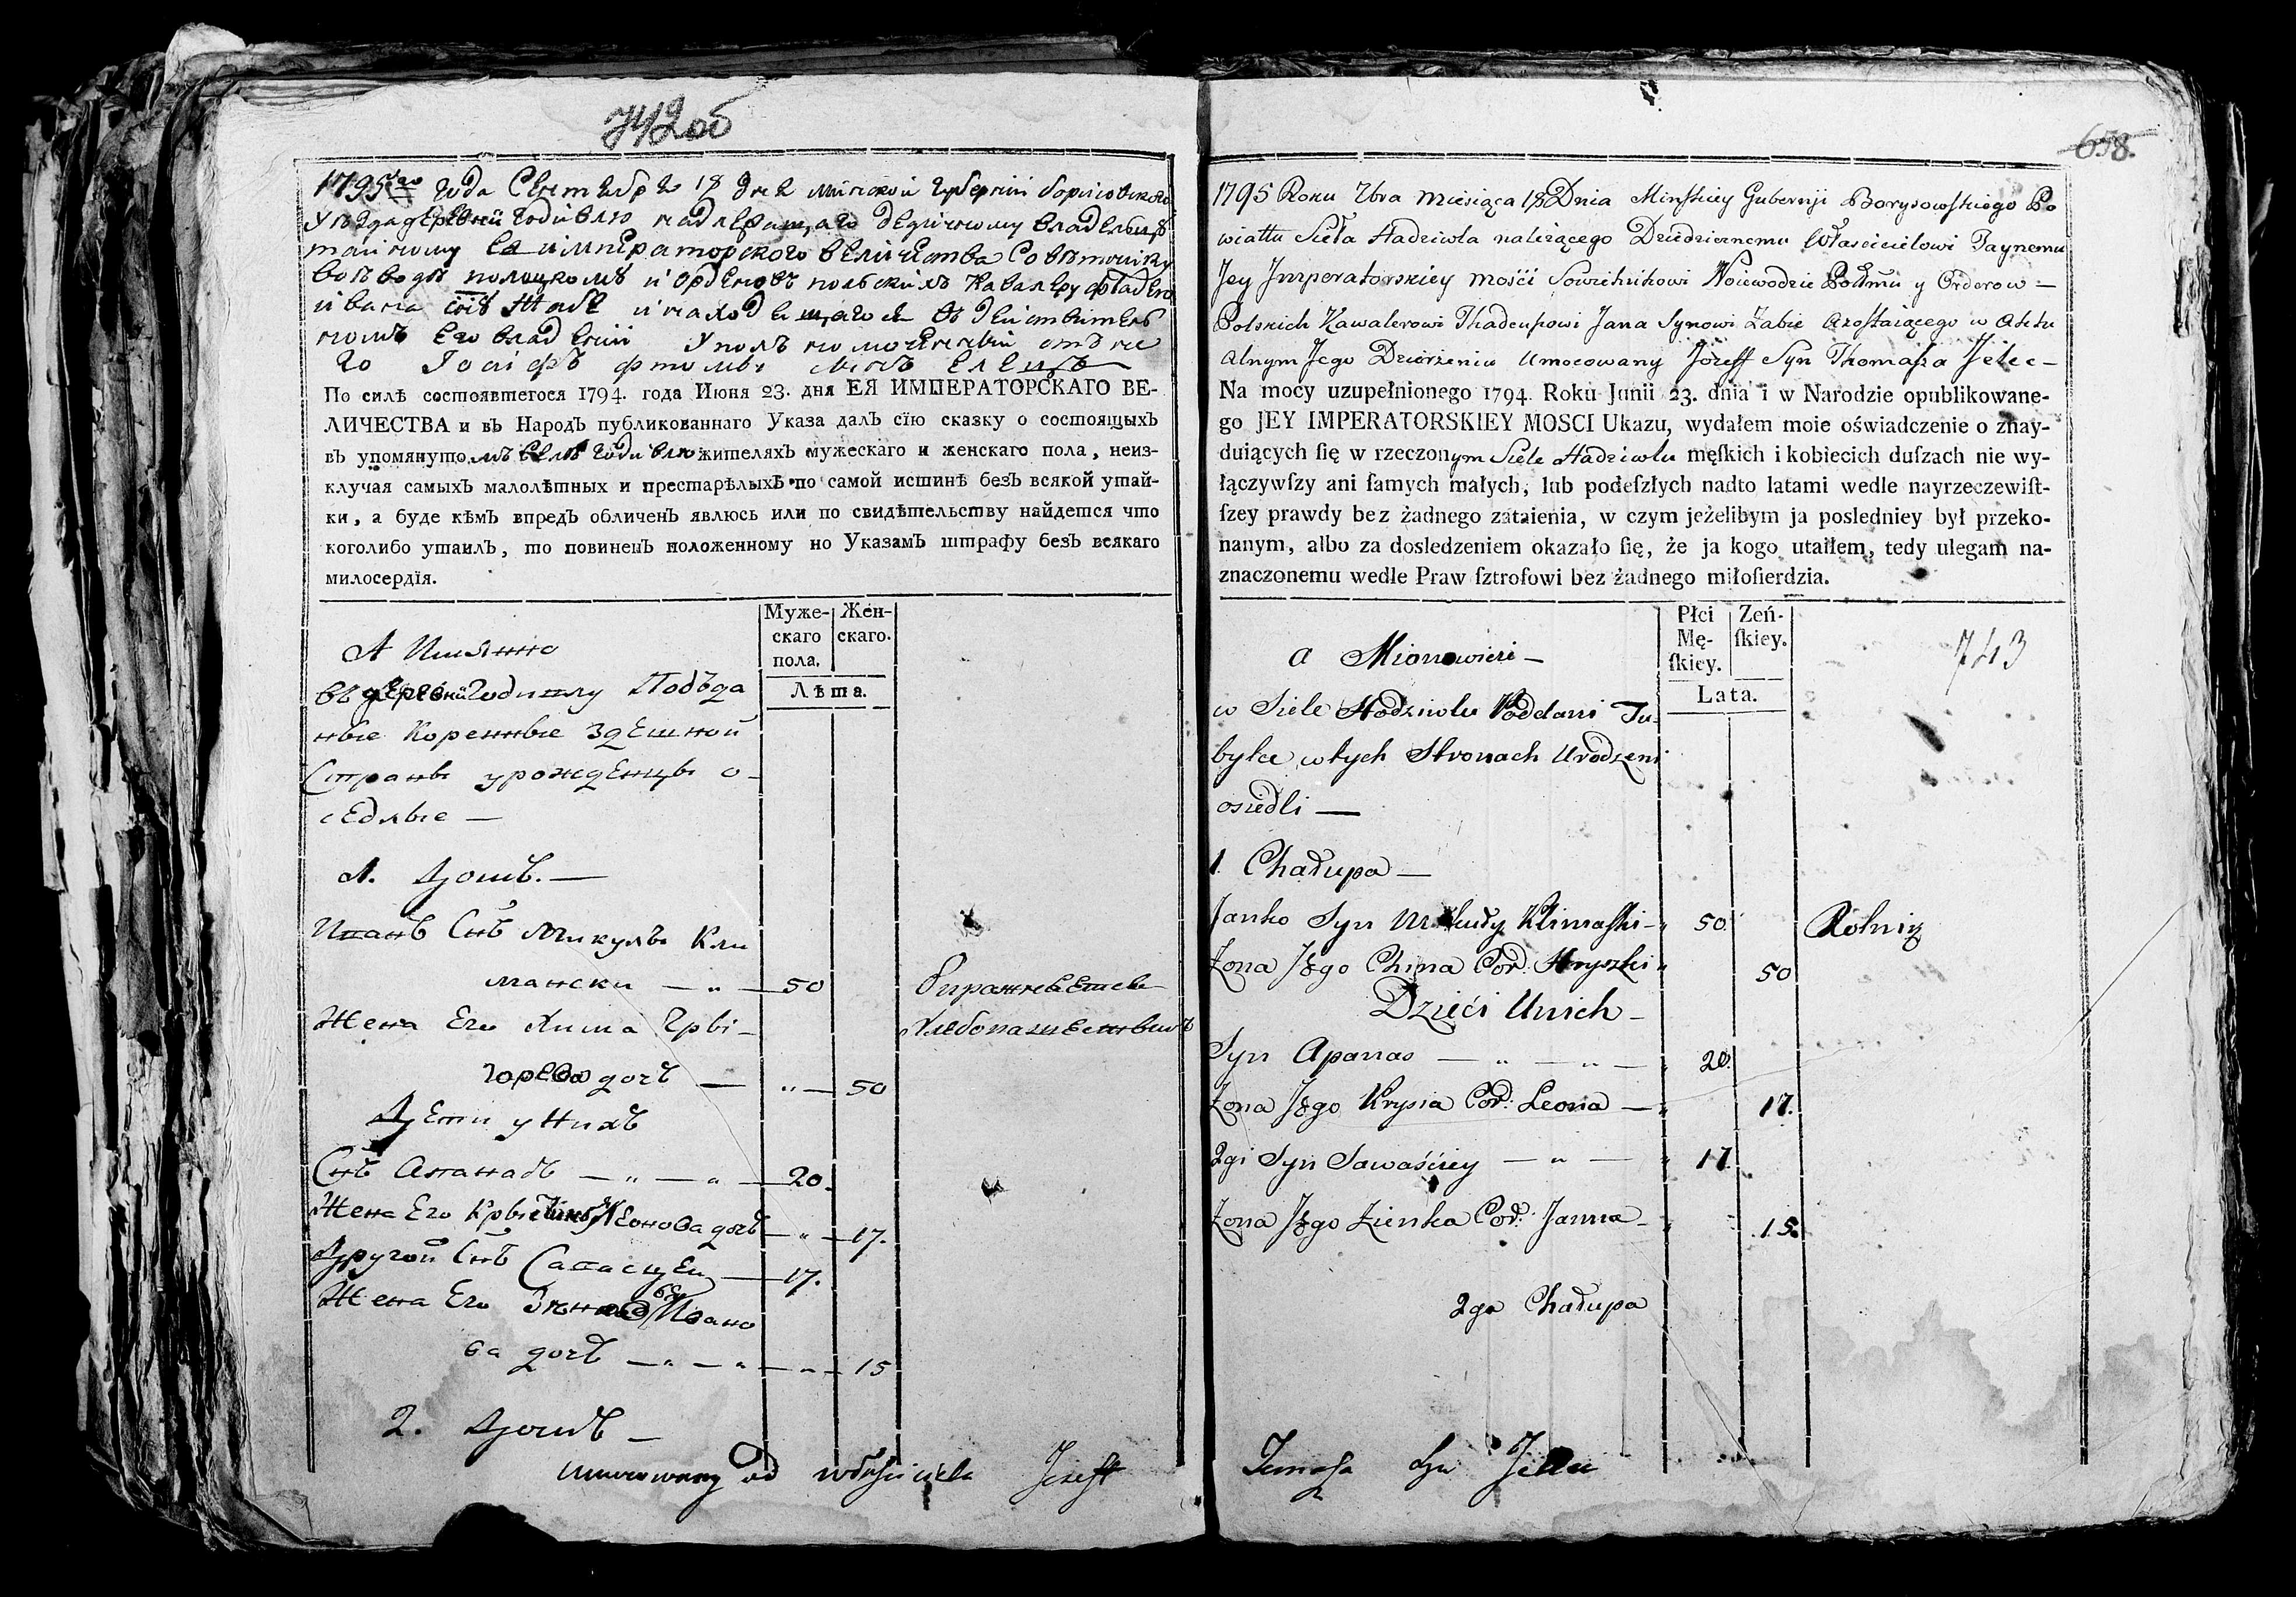 742об
1795го года Сентебре 18 дня минской губернии борисовского
уезда деревни Годивлю надлежащаго дедичному владельцу
тайному Ея императорского величества Советнику
воеводы полоцкомъ и орденовъ польскихъ Кавалеру фадею
ивана сну Жабе и находещагося въ действитель
номъ его владении Уполномоченный отъ не
го Іосифъ фтомы сынъ Елецъ
По силѣ состоявшегося 1794. года Июня 23. дня ЕЯ ИМПЕРАТОРСКАГО ВЕ-
ЛИЧЕСТВА и въ Народъ публикованнаго Указа далъ сїю сказку о состоящыхъ
въ упомянутомъ селѣ Годивлю жителяхъ мужескаго и женскаго пола, неиз-
ключая самыхъ малолѣтных и престарѣлыхъ по самой истинѣ безъ всякой утай-
ки, а буде кѣмъ впредъ обличенъ явлюсь или по свидѣтельству найдется что
коголибо утаилъ, то повиненъ положенному по Указамъ штрафу безъ всякаго
милосердїя.
Муже-скаго пола. Жен-скаго.
Лѣта.
А Имянно
въ деревни Годивлу Подъда
ные Коренные здешной
Страны урожденцы о-
седлые —
1. Домъ. —
Иванъ Снъ Микулы Кли
мански — „ — 50
Жена Его Хима Гры-
горева дочъ — „ — 50
въ пражневаетсе
Хлебопашествомъ
Дети у Нихъ
Снъ Апанасъ — „ — „ — 20.
Жена Его Крыстина Леонова дочъ — „ — 17.
Другой Снъ Савасцей — 17.
Жена Его Зеновья Ивано
ва дочъ — „ — „ — „ — 15
2. Домъ —
Umocowany od właściciela Jozeff
658.
1795 Roku 7bra Miesiąca 18 Dnia Minskiey Gubernji Borysowskiego Po
wiattu Sieła Hadziwla należącego Dziedzicznemu Włascicielowi Taynemu
Jey Jmperatorskiey mości Sowietnikowi Woiewodzie Połłmu y Orderow —
Polskich Kawalerowi Thadeuszowi Jana Synowi Żabie azostaiącego w Aktu
alnym Jego Dzierżeniu Umocowany Jozeff Syn Thomasza Jelec —
Na mocy uzupełnionego 1794. Roku Junii 23. dnia i w Narodzie opublikowane-
go JEY IMPERATORSKIEY MOSCI Ukazu, wydałem moie oświadczenie o znay-
duiących ſię w rzeczonym Siele Hadziwlu męſkich i kobiecich duſzach nie wy-
łączywſzy ani ſamych małych, lub podeſzłych nadto latami wedle nayrzeczewiſt-
ſzey prawdy bez żadnego zataienia, w czym jeżelibym ja posledniey był przeko-
nanym, albo za dosledzeniem okazało ſię, że ja kogo utaiłem, tedy ulegam na-
znaczonemu wedle Praw ſztrofowi bez żadnego miłoſierdzia.
Płci Mę-ſkiey. Zeń-ſkiey.
Lata.
743
a Mionowicie —
w Siele Hodziwlu Poddani Tu-
bylce wtych Stronach Urodzeni
osiedli —
1. Chałupa —
Janko Syn Mikuły Klimaſki — „ 50.
Rolnią
Żona Jego China Cor: Hryszki „ 50
Dzieći Unich —
Syn Apanas — „ — „ — „ 20.
Żona Jego Krysia Cor: Leona — „ 17.
2gi Syn Sawaściey — „ — „ 17.
Żona Jego Zienka Cor: Janna — „ 15.
2ga Chałupa
Tomaſza Syn Jelec